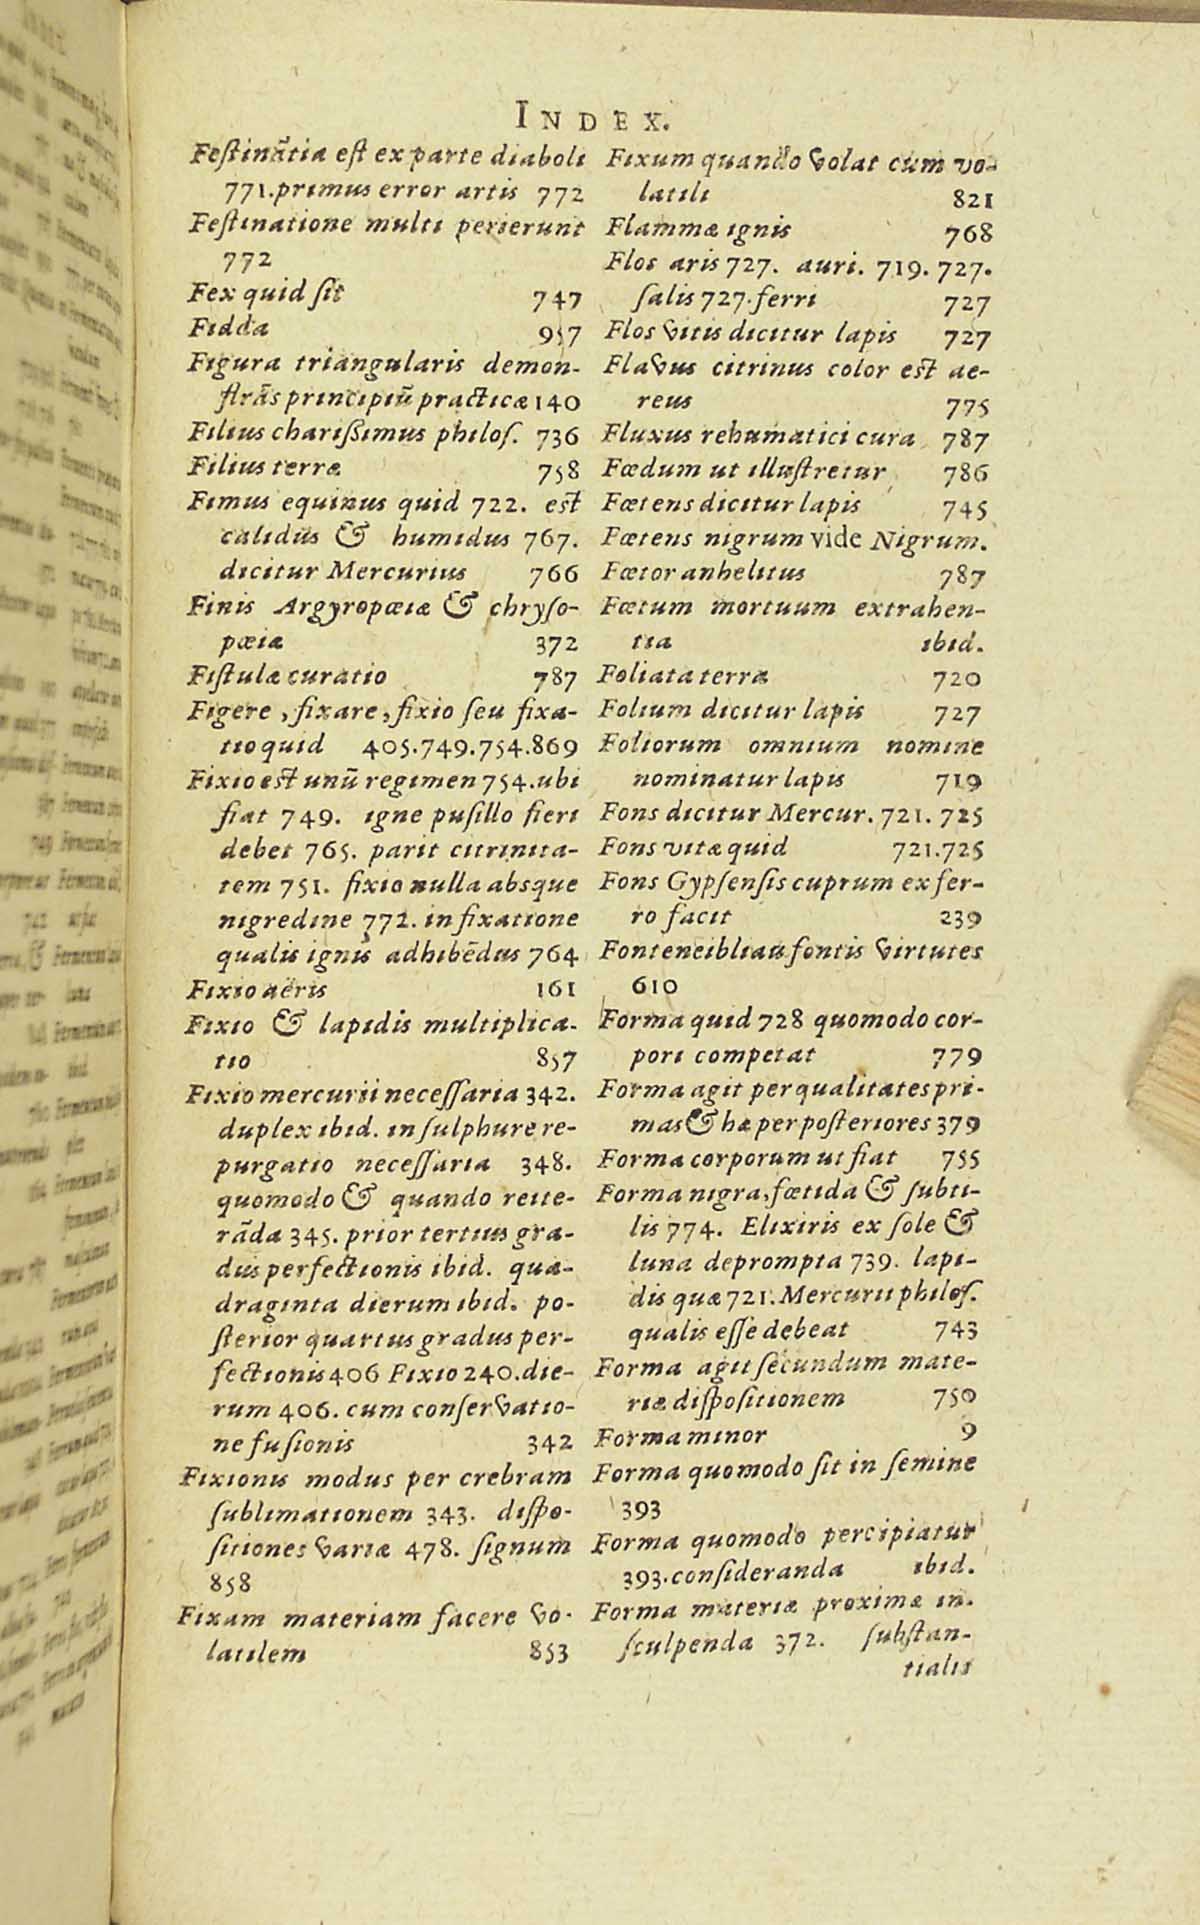 INDEX.
Festinãtia est ex parte diaboli
771. primus error artis 772
Festinatione multi perierunt
772
Fex quid sit 747
Fidda 957
Figura triangularis demon-
strãs principiũ practicæ 140
Filius charißimus philos. 736
Filius terræ 758
Fimus equinus quid 722. est
calidus & humidus 767.
dicitur Mercurius 766
Finis Argyropœiæ & chryso-
pœiæ 372
Fistulæ curatio 787
Figere, fixare, fixio seu fixa-
tio quid 405.749.754.869
Fixio est unũ regimen 754. ubi
fiat 749. igne pusillo fieri
debet 765. parit citrinita-
tem 751. fixio nulla absque
nigredine 772. in fixatione
qualis ignis adhibẽdus 764
Fixio aëris 161
Fixio & lapidis multiplica-
tio 857
Fixio mercurii necessaria 342.
duplex ibid. in sulphure re-
purgatio necessaria 348.
quomodo & quando reite-
rãda 345. prior tertius gra-
dus perfectionis ibid. qua-
draginta dierum ibid. po-
sterior quartus gradus per-
fectionis 406 Fixio 240. die-
rum 406. cum conservatio-
ne fusionis 342
Fixionis modus per crebram
sublimationem 343. dispo-
sitiones variæ 478. signum
858
Fixam materiam facere vo-
latilem 853
Fixum quando volat cum vo-
latili 821
Flammæ ignis 768
Flos æris 727. auri. 719. 727.
salis 727. ferri 727
Flos vitis dicitur lapis 727
Flavus citrinus color est ae-
reus 775
Fluxus rehumatici cura 787
Fœdum ut illustretur 786
Fœtens dicitur lapis 745
Fœtens nigrum vide Nigrum.
Fœtor anhelitus 787
Fœtum mortuum extrahen-
tia ibid.
Foliata terra 720
Folium dicitur lapis 727
Foliorum omnium nomine
nominatur lapis 719
Fons dicitur Mercur. 721. 725
Fons vitæ quid 721.725
Fons Gypsensis cuprum ex fer-
ro facit 239
Fonteneibliau fontis virtutes
610
Forma quid 728 quomodo cor-
pori competat 779
Forma agit per qualitates pri-
mas & hæ per posteriores 379
Forma corporum ut fiat 755
Forma nigra, fœtida & subti-
lis 774. Elixiris ex sole &
luna deprompta 739. lapi-
dis quæ 721. Mercurii philos.
qualis esse debeat 743
Forma agit secundum mate-
riæ dispositionem 750
Forma minor 9
Forma quomodo sit in semine
393
Forma quomodo percipiatur
393. consideranda ibid.
Forma materiæ proximæ in-
sculpenda 372. substan-
tialis